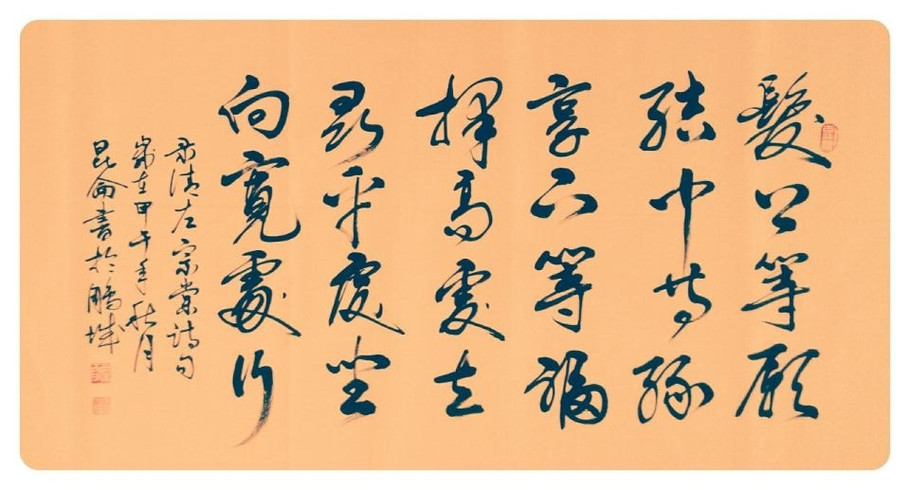 髮上等願
結中等緣
享下等福
擇高處立
平處坐
向寬處行
录清左宗棠詩句
歲在甲午年秋月
昆侖書於鵬城